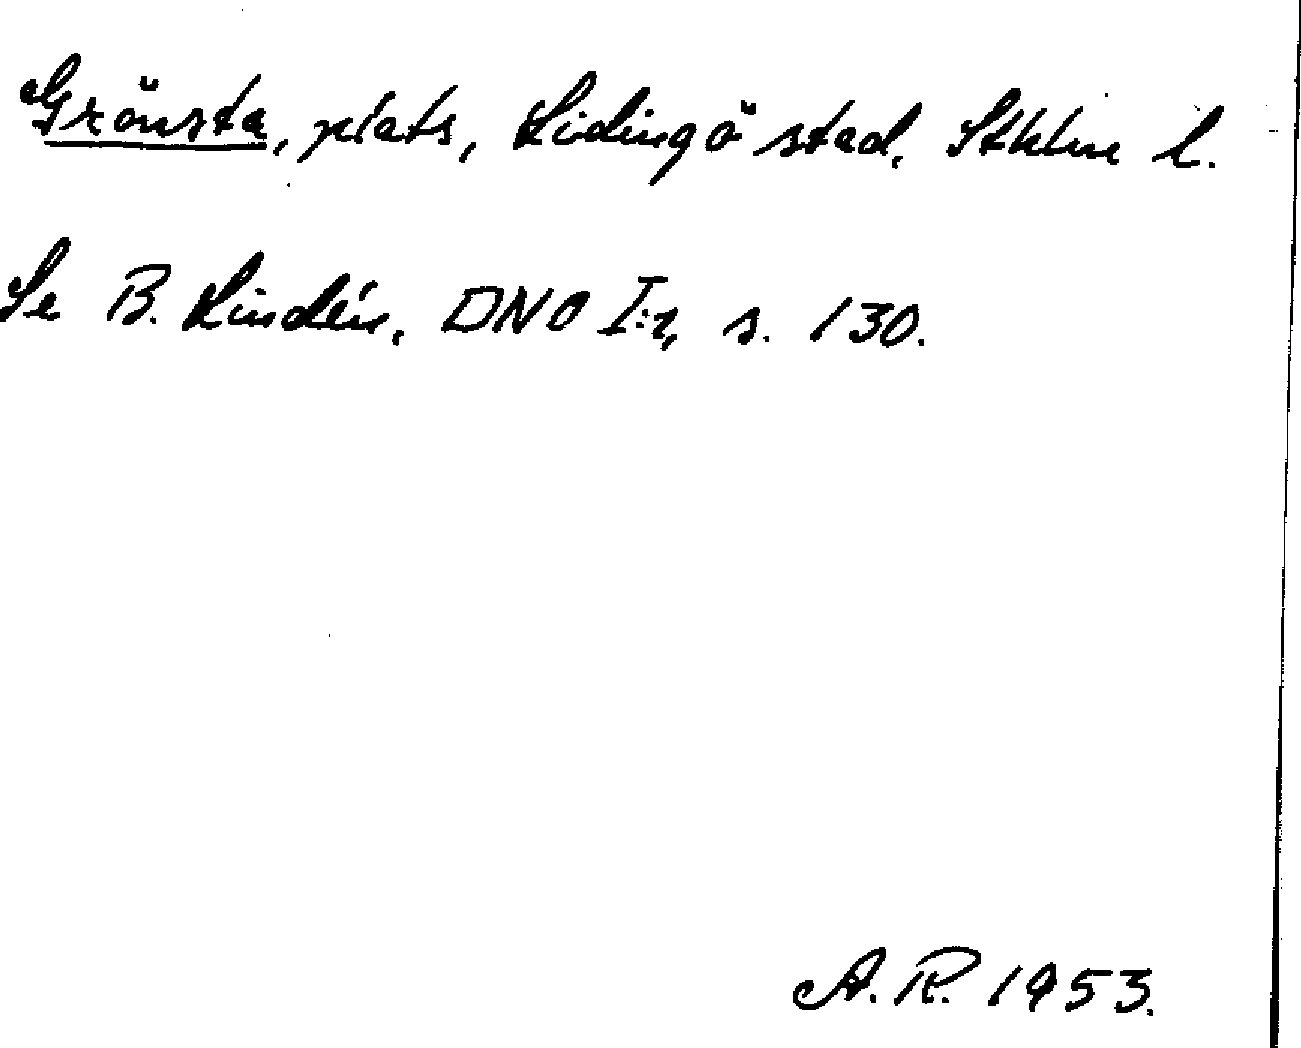 Grönsta, plats, Lidingö stad, Sthlm l.
Se B. Lindén, DNO I:1, s. 130.
A.R. 1953.